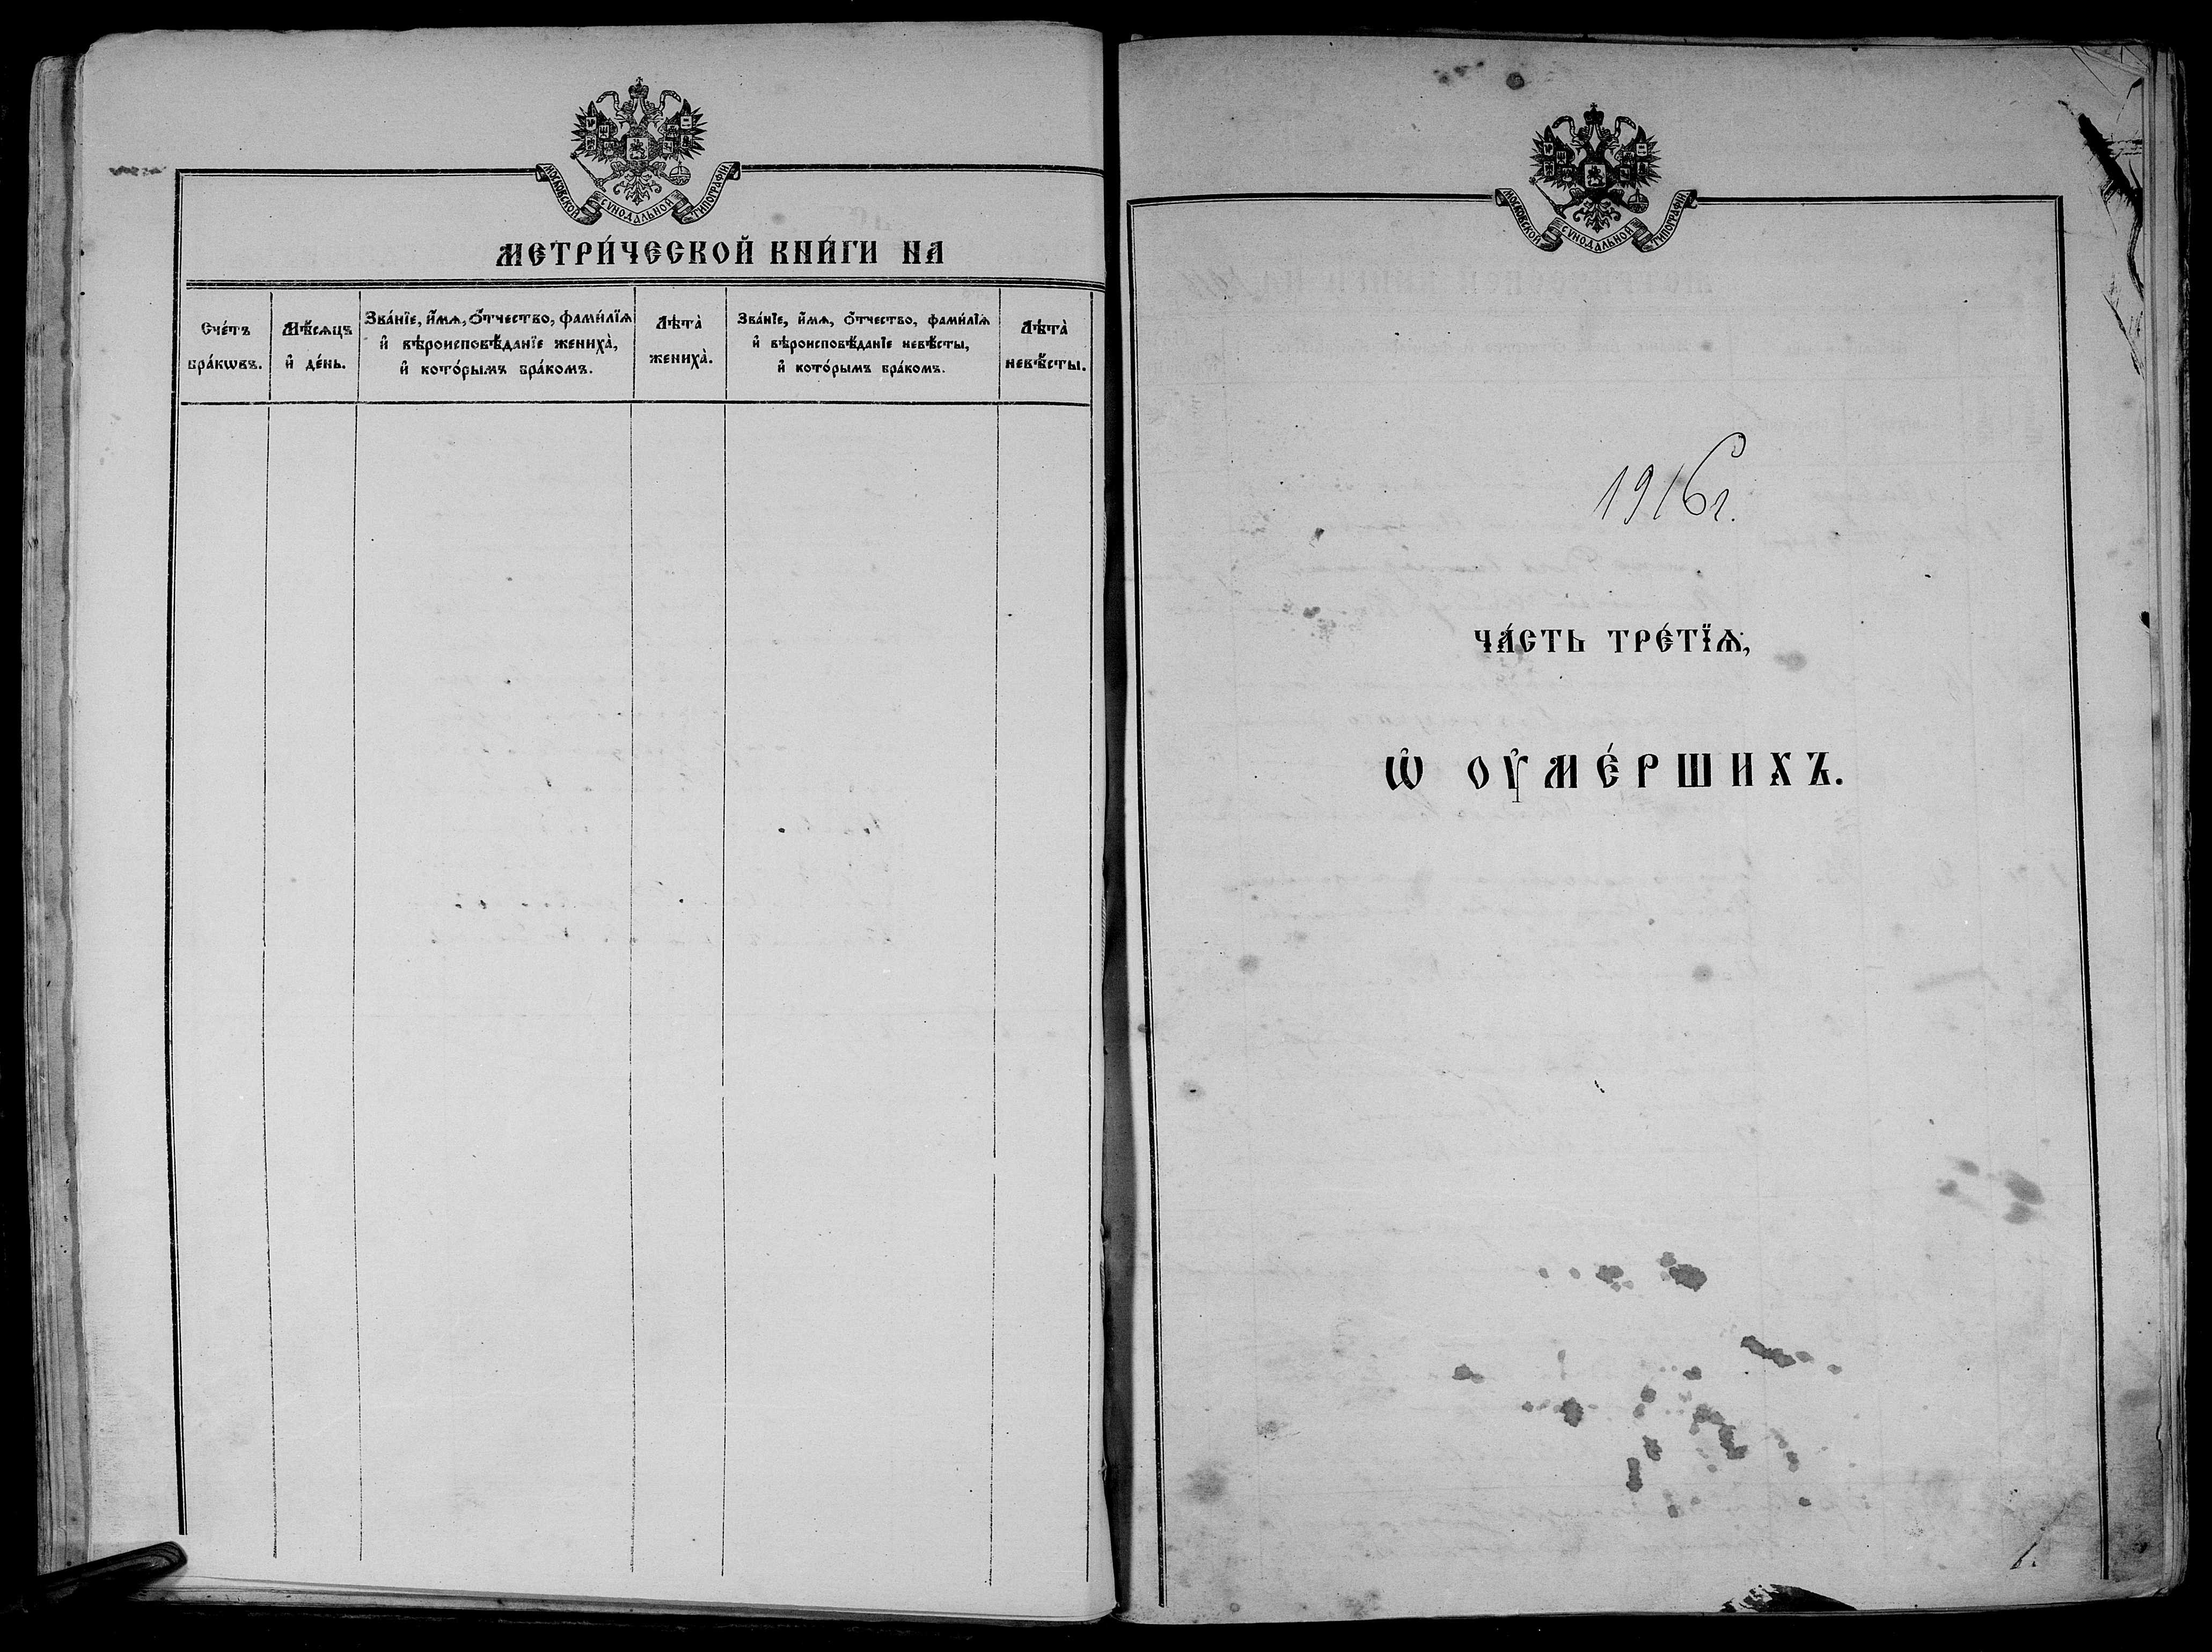 МОСКОВСКОЙ СѴНОДАЛЬНОЙ ТИПОГРАФІИ
МЕТРИ́ЧЕСКОЙ КНИ́ГИ НА
Сче́тъ
бра́кѡвъ.
Мѣ́сѧцъ
и҆ де́нь.
Зва́нїе, и҆́мѧ, ѻ҆́тчество, фами́лїѧ
и҆ вѣроисповѣ́данїе жениха̀,
и҆ кото́рымъ бра́комъ.
Лѣта̀
жениха̀.
Зва́нїе, и҆́мѧ, ѻ҆́тчество, фами́лїѧ
и҆ вѣроисповѣ́данїе невѣ́сты,
и҆ кото́рымъ бра́комъ.
Лѣта̀
невѣ́сты.
МОСКОВСКОЙ СѴНОДАЛЬНОЙ ТИПОГРАФІИ
1916 г.
ЧА́СТЬ ТРЕ́ТЇѦ,
Ѡ҆ ОУ҆МЕ́РШИХЪ.
1.